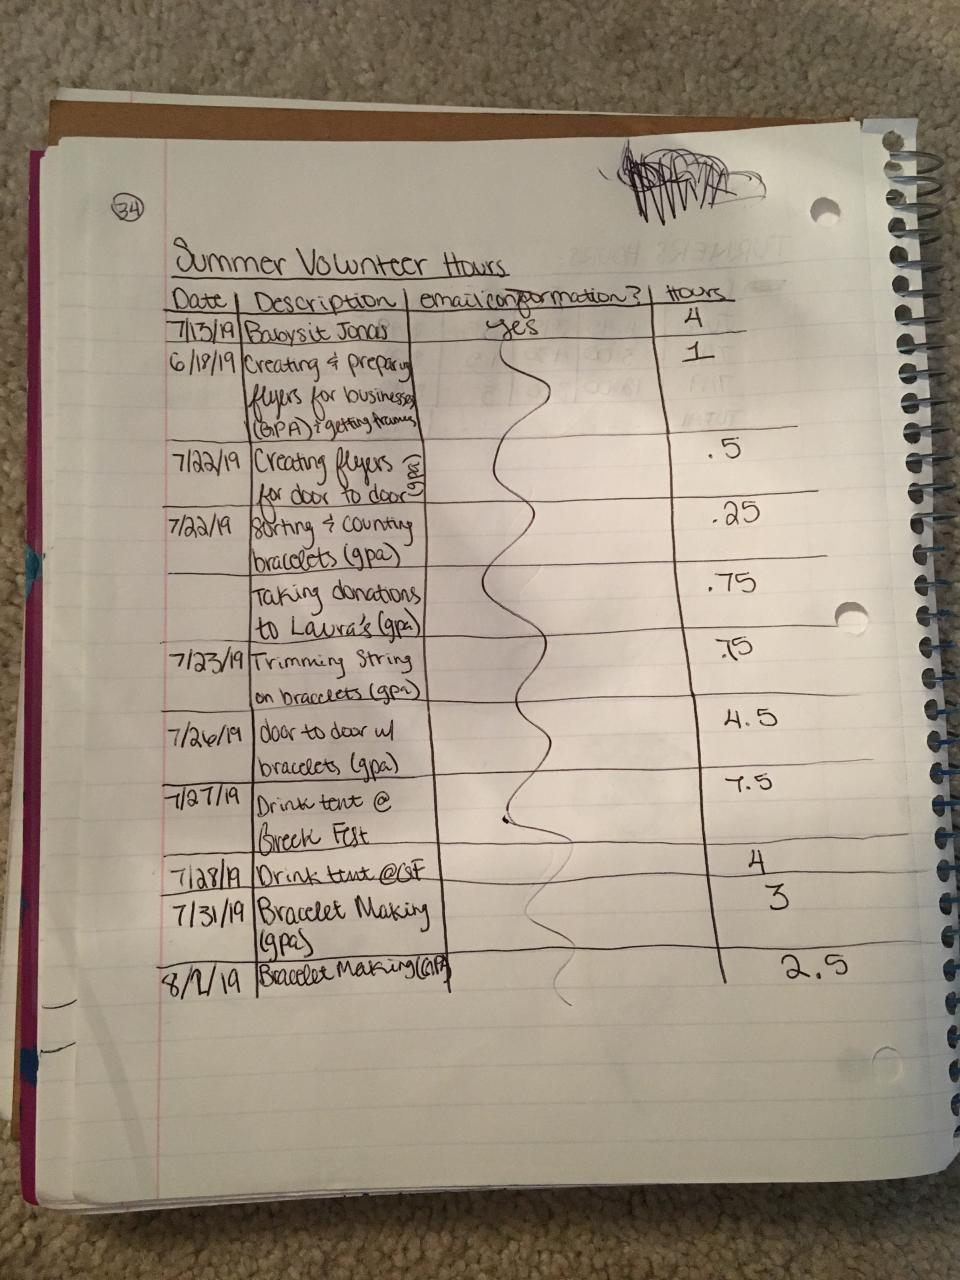 34
Summer Volunteer Hours
Date Description email conformation? Hours
7/13/19 Babysit Jonas yes 4
6/18/19 Creating & preparing 1
flyers for businesses
(GPA) & getting frames
7/22/19 Creating flyers (gpa) .5
for door to door
7/22/19 Sorting & counting .25
bracelets (gpa)
Taking donations .75
to Laura's (gpa)
7/23/19 Trimming String .75
on bracelets (gpa)
7/26/19 door to door w/ 4.5
bracelets (gpa)
7/27/19 Drink tent @ 7.5
Breck Fest
7/28/19 Drink tent @ 4
7/31/19 Bracelet Making 3
(gpa)
Bracelet Making (GPA) 2.5